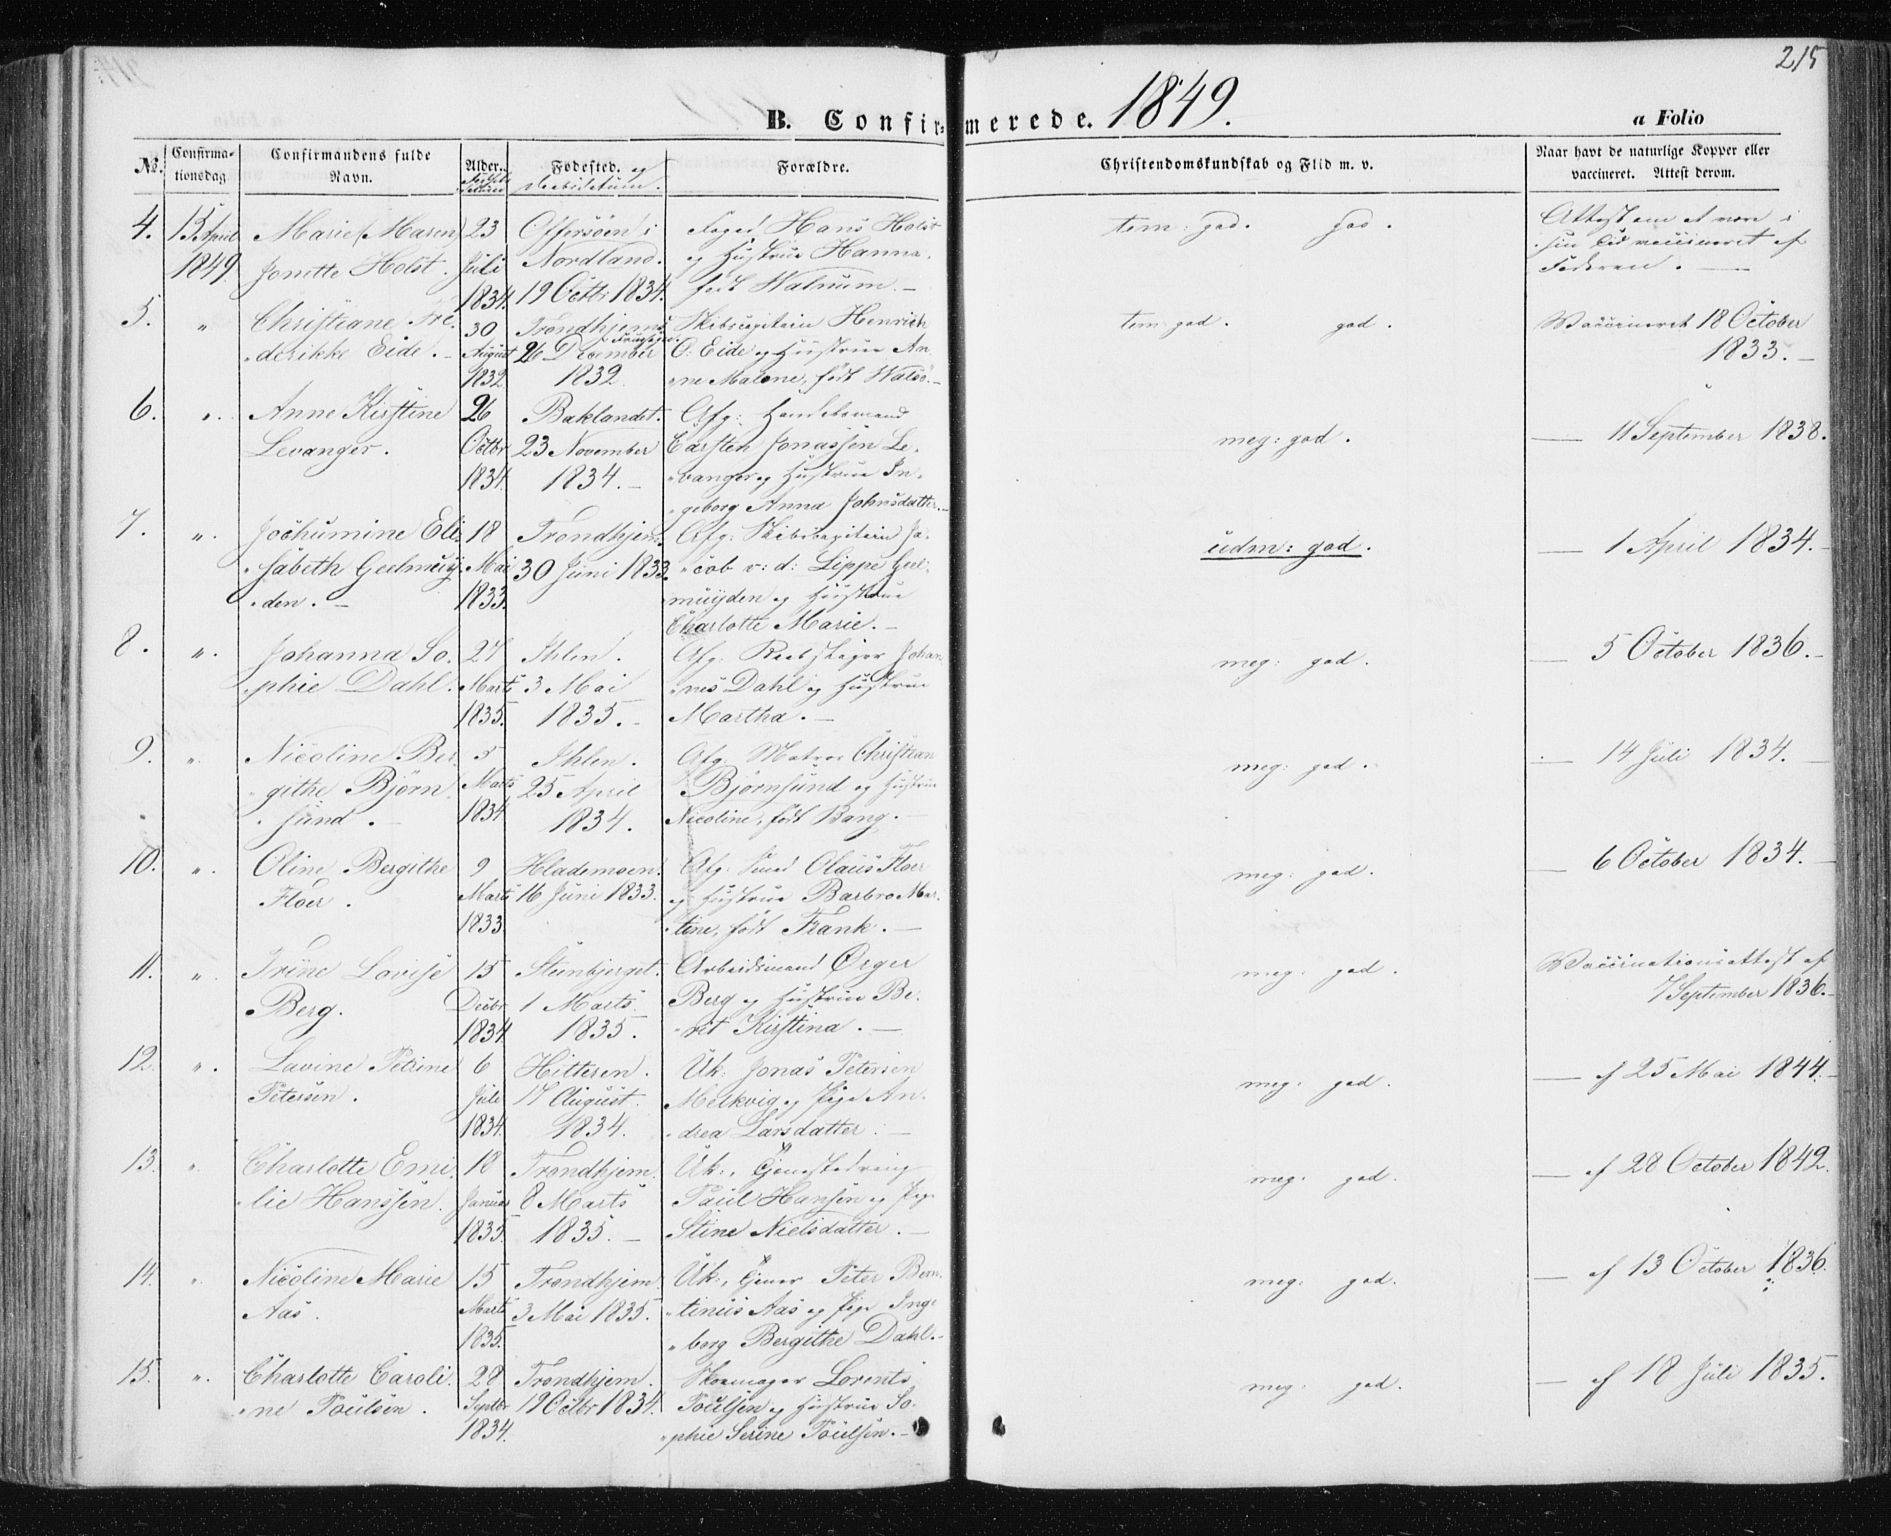 215
B. Confirmerede. 1849.
a Folio
No. Confirmationsdag Confirmandens fulde Navn. Alder. Fødested. og Forældre. Christendomskundskab og Flid m. v. Naar havt de naturlige Kopper eller vaccineret. Attest derom.
4. 15 April Marie (Maren) 23 Offersøen i Foged Hans Holst tem: god. god. Attest om at være i
1849. Jonette Holst. Juli Nordland. og Hustrue Hanna, sin Tid vaccineret af
1834. 19 Octbr 1834. født Walnum. Faderen.
5. " Christiane Fre- 30 Trondhjems Skibscapitain Henrich tem: god. god. Vaccineret 18 October
derikke Eide. August 26 December O: Eide og Hustrue An- 1833.
1832. 1832. ne Malene, født Walsø.
6. " Anne Kirstine 26 Baklandet. Afg: Handelsmand
Levanger. Octbr 23 November Carsten Jonassen Le- meg: god. — 11 September 1838.
1834. 1834. vanger og Hustrue In-
geborg Anna Johnsdatter.
7. " Jochumine Eli- 18 Trondhjem. Afg: Skibscapitain Ja- udm: god. — 1 April 1834.
sabeth Geelmuy- Mai 30 Juni 1833. cob v: d: Lippe Geel-
den. 1833. muyden og Hustrue
Charlotte Marie.
8. " Johanna So- 27 Ihlen. Afg: Rebslager Johan- meg: god. — 5 October 1836.
phie Dahl. Marts 3 Mai nes Dahl og Hustrue
1835. 1835. Martha.
9. " Nicoline Ber- 5 Ihlen. Afg: Matros Christian meg: god. — 14 Juli 1834.
githe Bjørn- Marts 25 April Bjørnsund og Hustrue
sund. 1834 1834. Nicoline, født Bang.
10. " Oline Bergithe 9 Hlademoen. Afg: Smed Olaus Floer meg: god. — 6 October 1834.
Floer. Marts 16 Juni 1833. og Hustrue Barbro Mar-
1833 tine, født Frank.
11. " Trine Lovise 15 Steinbjerget. Arbeidsmand Ørger meg: god. Vaccinationsattest af
Berg. Decbr 1 Marts Berg og Hustrue Be- 7 September 1836.
1834 1835. rit Kirstina.
12. " Lavine Petrine 6 Hitteren. Uk: Jonas Petersen meg: god. — af 25 Mai 1844.
Petersen. Juli 17 August. Melkvig og Pige An-
1834. 1834. drea Larsdatter.
13. " Charlotte Emi- 18 Trondhjem. Uk:, Tjenestedreng meg: god. — af 28 October 1842.
lie Hanssen. Januar 8 Marts Paul Hansen og Pige
1835. 1835. Stine Nielsdatter.
14. " Nicoline Marie 15 Trondhjem Uk:, Tjener Peter Bern- meg: god. — af 13 October 1836.
Aas. Marts 3 Mai 1835. tinus Aas og Pige Inge-
1835. borg Bergithe Dahl.
15. " Charlotte Caroli- 28 Trondhjem. Skomager Lorents meg: god. — af 18 Juli 1835.
ne Poulsen. Septbr 19 Octbr 1834. Poulsen og Hustrue So-
1834. phie Serine Poulsen.